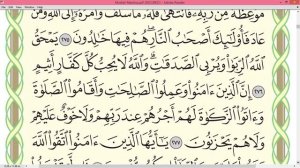 مَوْعِظَةٌ مِّن رَّبِّهِۦ فَٱنتَهَىٰ فَلَهُۥ مَا سَلَفَ وَأَمْرُهُۥٓ إِلَى ٱللَّهِ وَمَنْ
عَادَ فَأُو۟لَٰٓئِكَ أَصْحَٰبُ ٱلنَّارِ هُمْ فِيهَا خَٰلِدُونَ ٢٧٥ يَمْحَقُ
ٱللَّهُ ٱلرِّبَوٰا۟ وَيُرْبِى ٱلصَّدَقَٰتِ وَٱللَّهُ لَا يُحِبُّ كُلَّ كَفَّارٍ أَثِيمٍ
٢٧٦ إِنَّ ٱلَّذِينَ ءَامَنُوا۟ وَعَمِلُوا۟ ٱلصَّٰلِحَٰتِ وَأَقَامُوا۟ ٱلصَّلَوٰةَ
وَءَاتَوُا۟ ٱلزَّكَوٰةَ لَهُمْ أَجْرُهُمْ عِندَ رَبِّهِمْ وَلَا خَوْفٌ عَلَيْهِمْ
وَلَا هُمْ يَحْزَنُونَ ٢٧٧ يَٰٓأَيُّهَا ٱلَّذِينَ ءَامَنُوا۟ ٱتَّقُوا۟ ٱللَّهَ